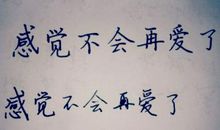 感觉不会再爱了
感觉不会再爱了